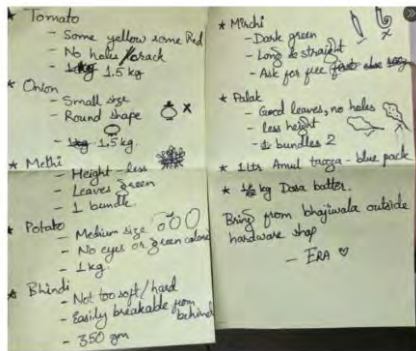 * Tomato
- Some yellow some Red
- No holes/crack
- 1kg 1.5 kg
* Onion
- Small size
- Round shape
- 1kg 1.5 kg.
* Methi
- Height - less
- Leaves green
- 1 bundle.
* Potato
- Medium size
- No eyes or green colour
- 1 kg.
* Bhindi
- Not too soft/hard
- Easily breakable from behind
- 350 gm
* Mirchi
- Dark green
- Long & straight
- Ask for free
* Palak
- Good leaves, no holes
- less height
- bundles 2
* 1 Ltr Amul taaza - blue pack
* kg Dosa batter.
Bring from bhajiwala outside
hardware shop
- ERA ♡